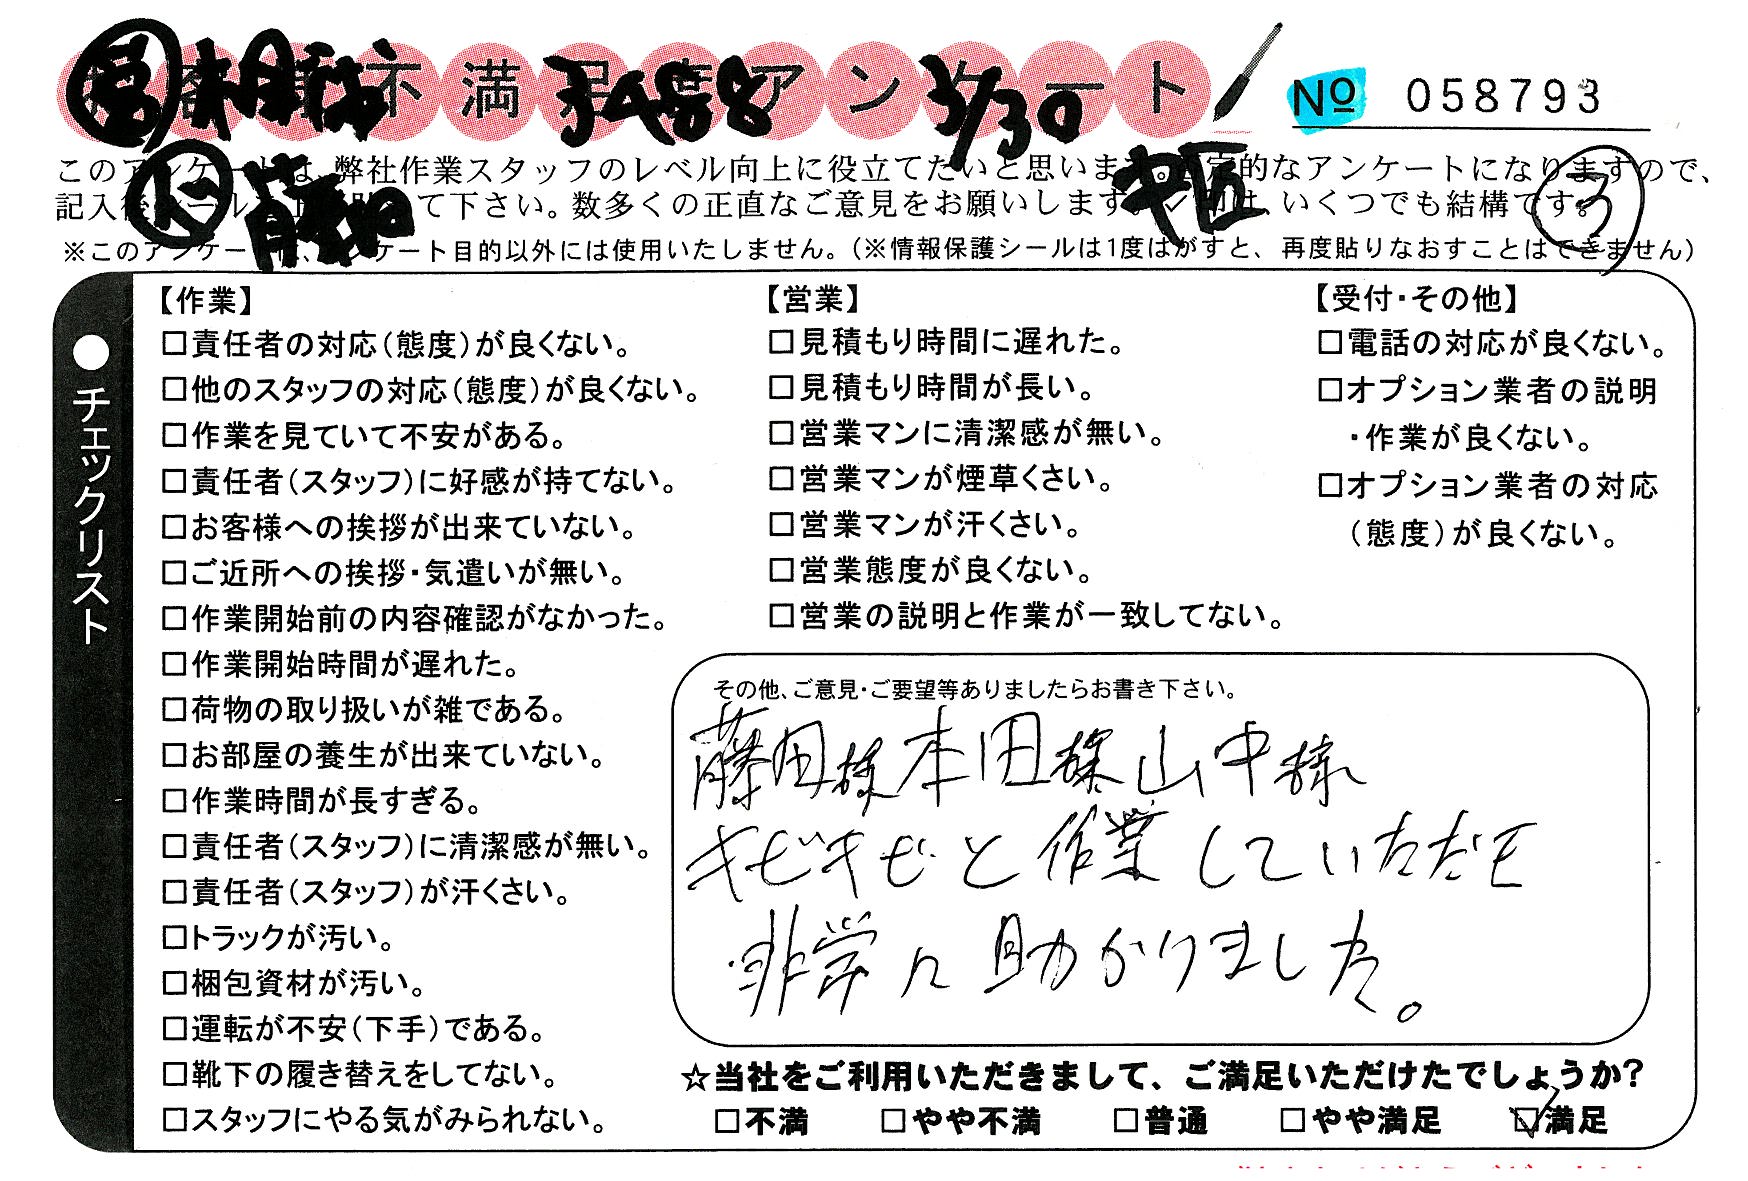 お客様不満足度アンケート
3488 3/30
№ 058793
このアンケートは、弊社作業スタッフのレベル向上に役立てたいと思います。否定的なアンケートになりますので、
記入後シールを 下さい。数多くの正直なご意見をお願いします。レ印は、いくつでも結構です。
③
※このアンケートは、アンケート目的以外には使用いたしません。(※情報保護シールは1度はがすと、再度貼りなおすことはできません)
●チェックリスト
【作業】
□責任者の対応(態度)が良くない。
□他のスタッフの対応(態度)が良くない。
□作業を見ていて不安がある。
□責任者(スタッフ)に好感が持てない。
□お客様への挨拶が出来ていない。
□ご近所への挨拶・気遣いが無い。
□作業開始前の内容確認がなかった。
□作業開始時間が遅れた。
□荷物の取り扱いが雑である。
□お部屋の養生が出来ていない。
□作業時間が長すぎる。
□責任者(スタッフ)に清潔感が無い。
□責任者(スタッフ)が汗くさい。
□トラックが汚い。
□梱包資材が汚い。
□運転が不安(下手)である。
□靴下の履き替えをしてない。
□スタッフにやる気がみられない。
【営業】
□見積もり時間に遅れた。
□見積もり時間が長い。
□営業マンに清潔感が無い。
□営業マンが煙草くさい。
□営業マンが汗くさい。
□営業態度が良くない。
□営業の説明と作業が一致してない。
【受付・その他】
□電話の対応が良くない。
□オプション業者の説明
・作業が良くない。
□オプション業者の対応
(態度)が良くない。
その他、ご意見・ご要望等ありましたらお書き下さい。
藤田様本田様山中様
キビキビと作業していただき
非常に助かりました。
☆当社をご利用いただきまして、ご満足いただけたでしょうか?
□不満 □やや不満 □普通 □やや満足 ☑満足